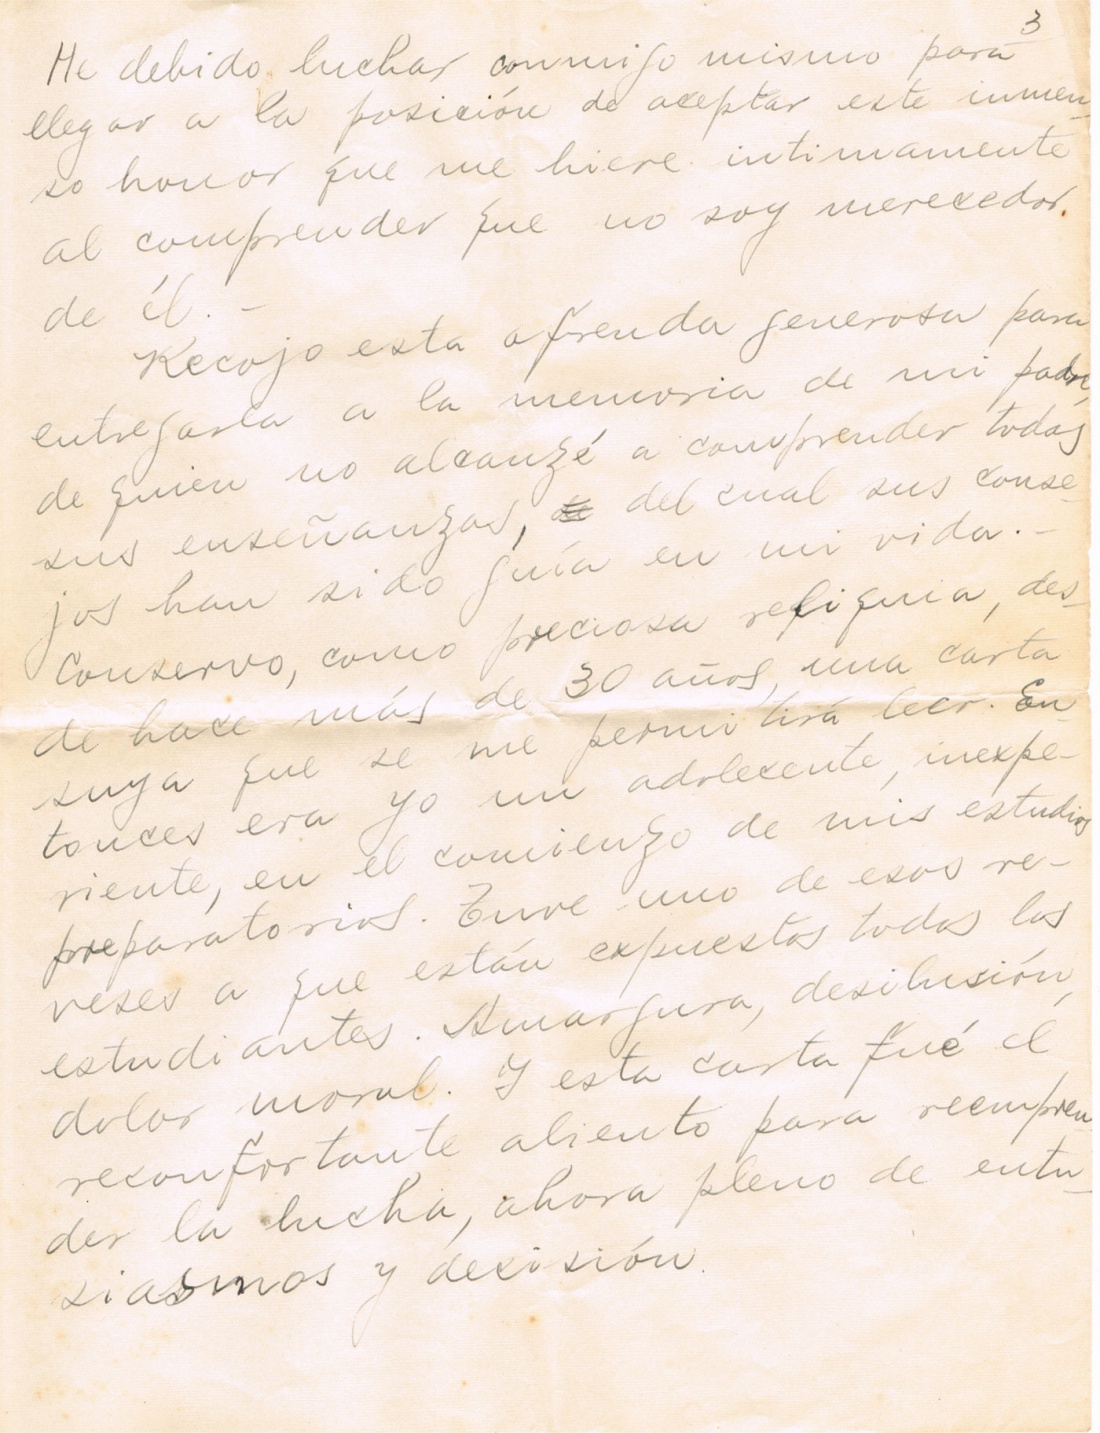 3
He debido luchar conmigo mismo para
llegar a la posición de aceptar este inmen-
so honor que me hiere intimamente
al comprender que no soy merecedor
de él. -
Recojo esta ofrenda generosa para
entregarla a la memoria de mi padre,
de quien no alcanzé a comprender todas
sus enseñanzas, del cual sus conse-
jos han sido guía en mi vida. -
Conservo, como preciosa reliquia, des-
de hace más de 30 años, una carta
suya que se me permitirá leer. En-
tonces era yo un adolecente, inexpe-
riente, en el comienzo de mis estudios
preparatorios. Tuve uno de esos re-
veses a que están expuestos todos los
estudiantes. Amargura, desilusión,
dolor moral. Y esta carta fué el
reconfortante aliento para reempren-
der la lucha, ahora pleno de entu-
siasmos y decisión.